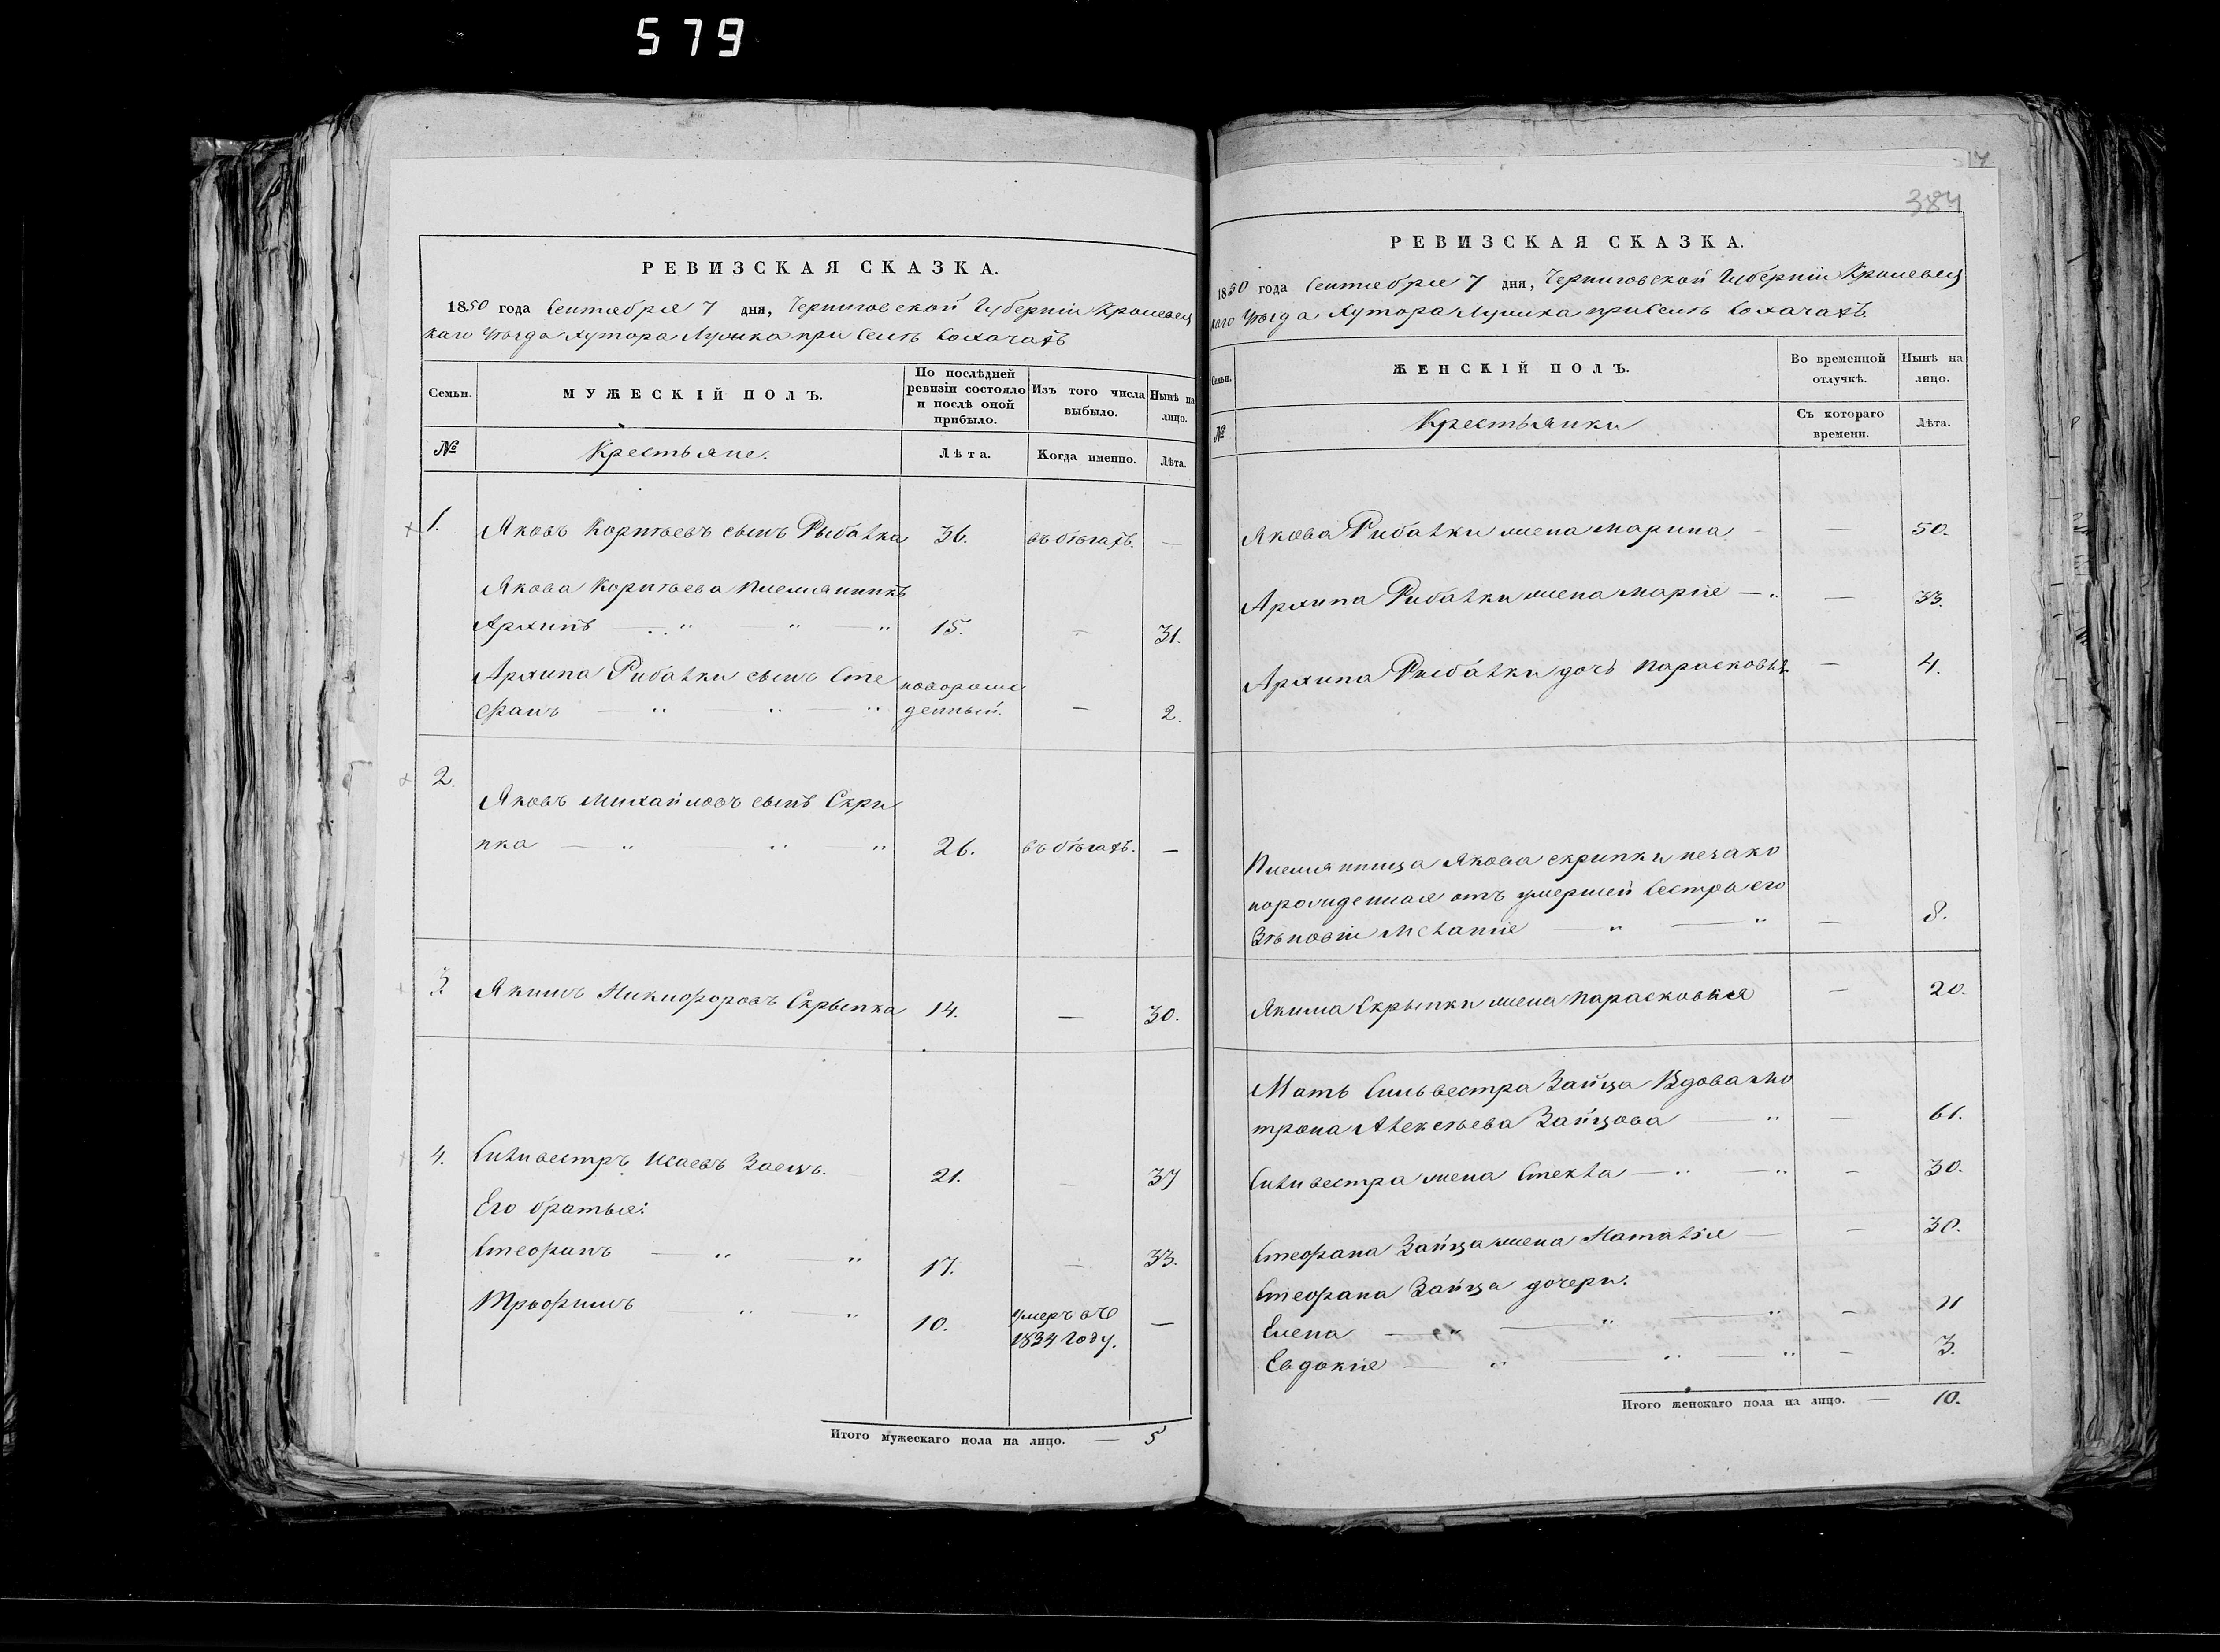 579
РЕВИЗСКАЯ СКАЗКА.
1850 года Сентября 7 дня, Черниговской Губерніи Кролевец
каго Уѣзда Хутора Лушка при Селѣ
Семьи.
МУЖЕСКІЙ ПОЛЪ.
По послѣдней ревизіи состояло и послѣ оной прибыло.
Изъ того числа выбыло.
Нынѣ на лицо.
№
Крестьяне.
Лѣта.
Когда именно.
Лѣта.
1. Яковъ Корнѣевъ сынъ Рыбалка 36. въ бѣгахъ. —
Якова Корнѣева племянникъ
Архипъ — " " — " 15. — 31.
Архипа Рибалки сынъ Сте новорож
фанъ — " — " — " денный. — 2.
2. Яковъ Михайловъ сынъ Скри
пка — " " " 26. въ бѣгахъ. —
3. Якимъ Никифоровъ Скрыпка 14. — 30.
4. Сильвестръ Исаевъ Заецъ. 21. — 37
Его братья:
Стефанъ — " — " 17. — 33.
Трофимъ " — " 10. умеръ въ —
1834 году.
Итого мужескаго пола на лицо. — 5
17
384
РЕВИЗСКАЯ СКАЗКА.
1850 года Сентября 7 дня, Черниговской Губерніи Кролевец
каго Уѣзда Хутора Лушка при Селѣ
Семьи.
ЖЕНСКІЙ ПОЛЪ.
Во временной отлучкѣ.
Нынѣ на лицо.
№
Крестьянки
Съ котораго времени.
Лѣта.
Якова Рибалки жена Марина — — 50.
Архипа Рибалки жена Марія — " — 33.
Архипа Рыбалки дочь Парасковья — 4.
Племянница Якова Скрипки незако
норожденная отъ умершей Сестры его
Зѣновіи Меланія — " — " — 8.
Якима Скрыпки жена Парасковья — 20.
Мать Сильвестра Зайца Вдова Мо
трона Алексѣева Зайцова — " — 61.
Сильвестра жена Стекла — " — " — 30.
Стефана Зайца жена Наталія — — 30.
Стефана Зайца дочери:
Елена — " — " — " — 11
Евдокія — " — " — " — 3.
Итого женскаго пола на лицо. — 10.